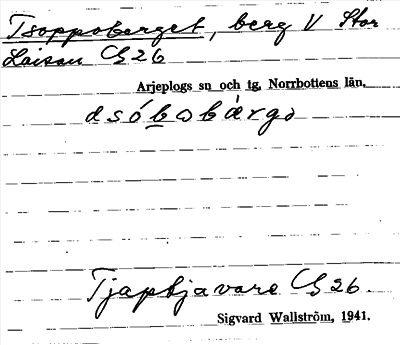 Tsoppoberget, berg V Stor
Laisan C§ 26
Arjeplogs sn och tg, Norrbottens län.
dsób̲ɔbǽrgə
Tjapkjavare C§ 26.
Sigvard Wallström, 1941.